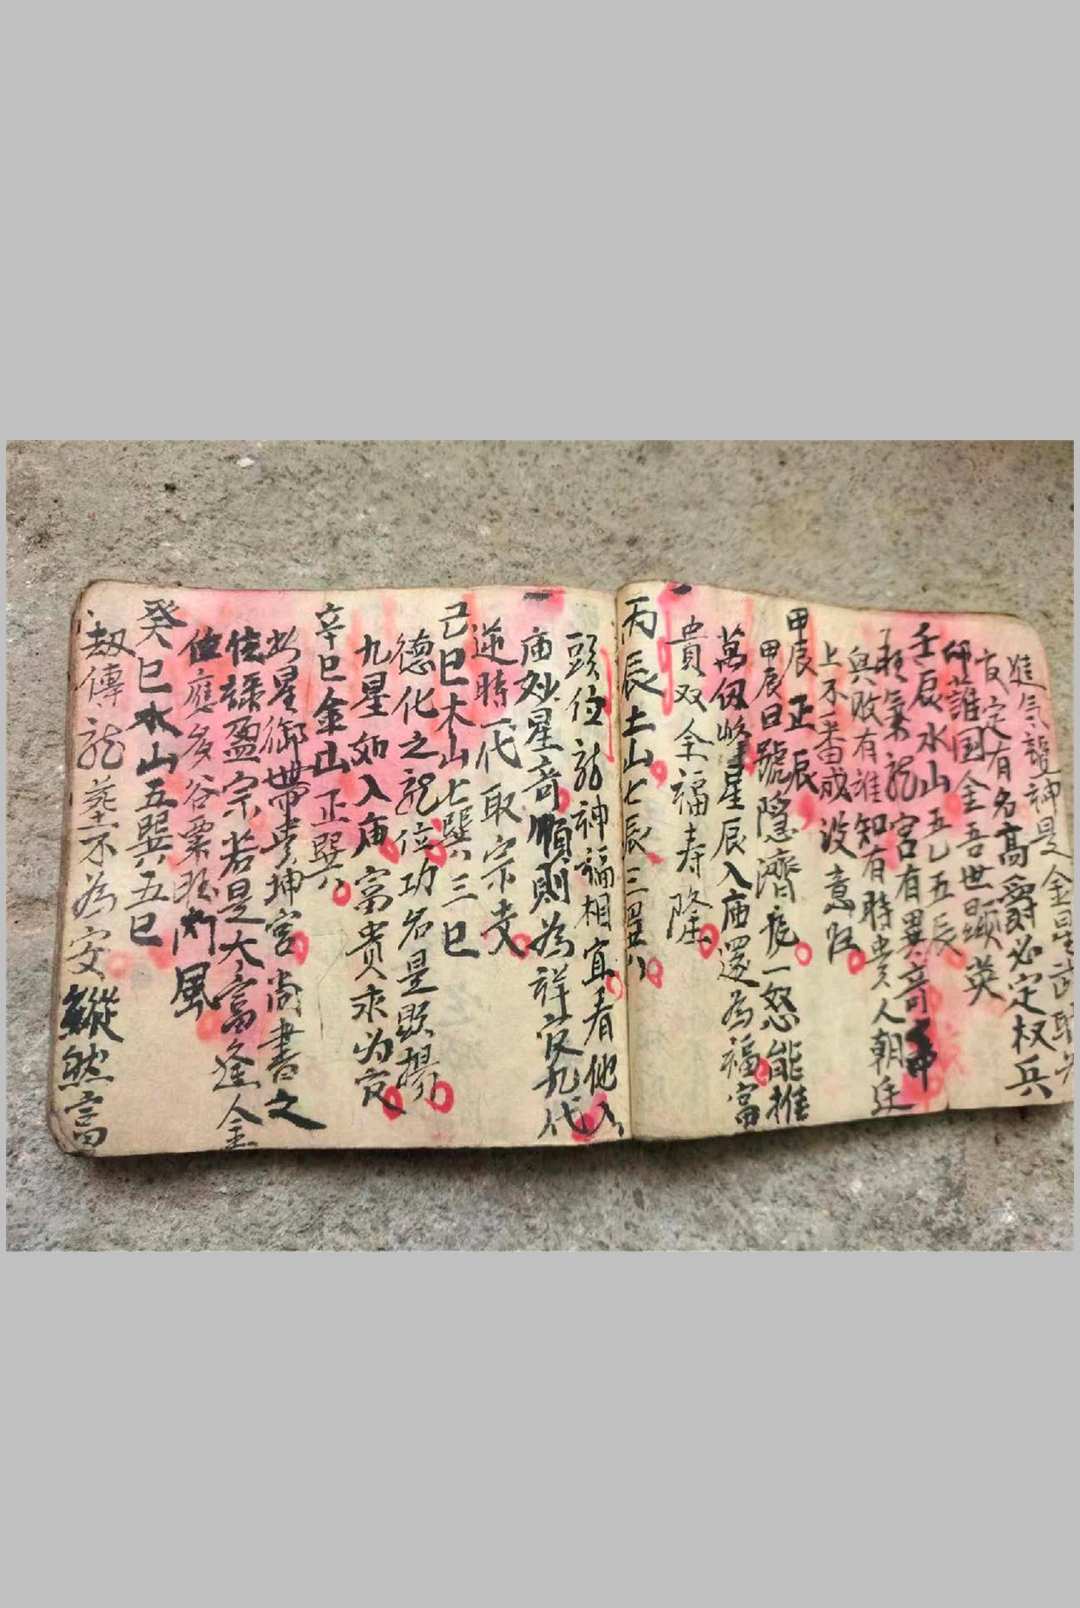 進氣龍神是金星武職
官定有名高爵必定权兵
誰国金吾世顕英
壬辰水山五乙五辰
旺氣龍宮有異奇
與敗有誰知有時貴人朝廷
上不番成沒意
甲辰正辰
甲辰日號隱濟龍一怒能推
萬仭星辰入庙還為福富
貴双全福寿隆
丙辰土山七辰三巽
頭位龍神福相宜看他入
庙妙星奇順則為祥官九代
逆時一代取宗支
己巳木山七巽三巳
德化之龍位功名是顕揚
九星如入庙富貴求为官
辛巳金山正巽
星御帶坤宮尚書文
禄盈宗若是大富逢金
位應多谷粟門風
癸巳水山五巽五巳
劫傳龍塟不為安縱然富